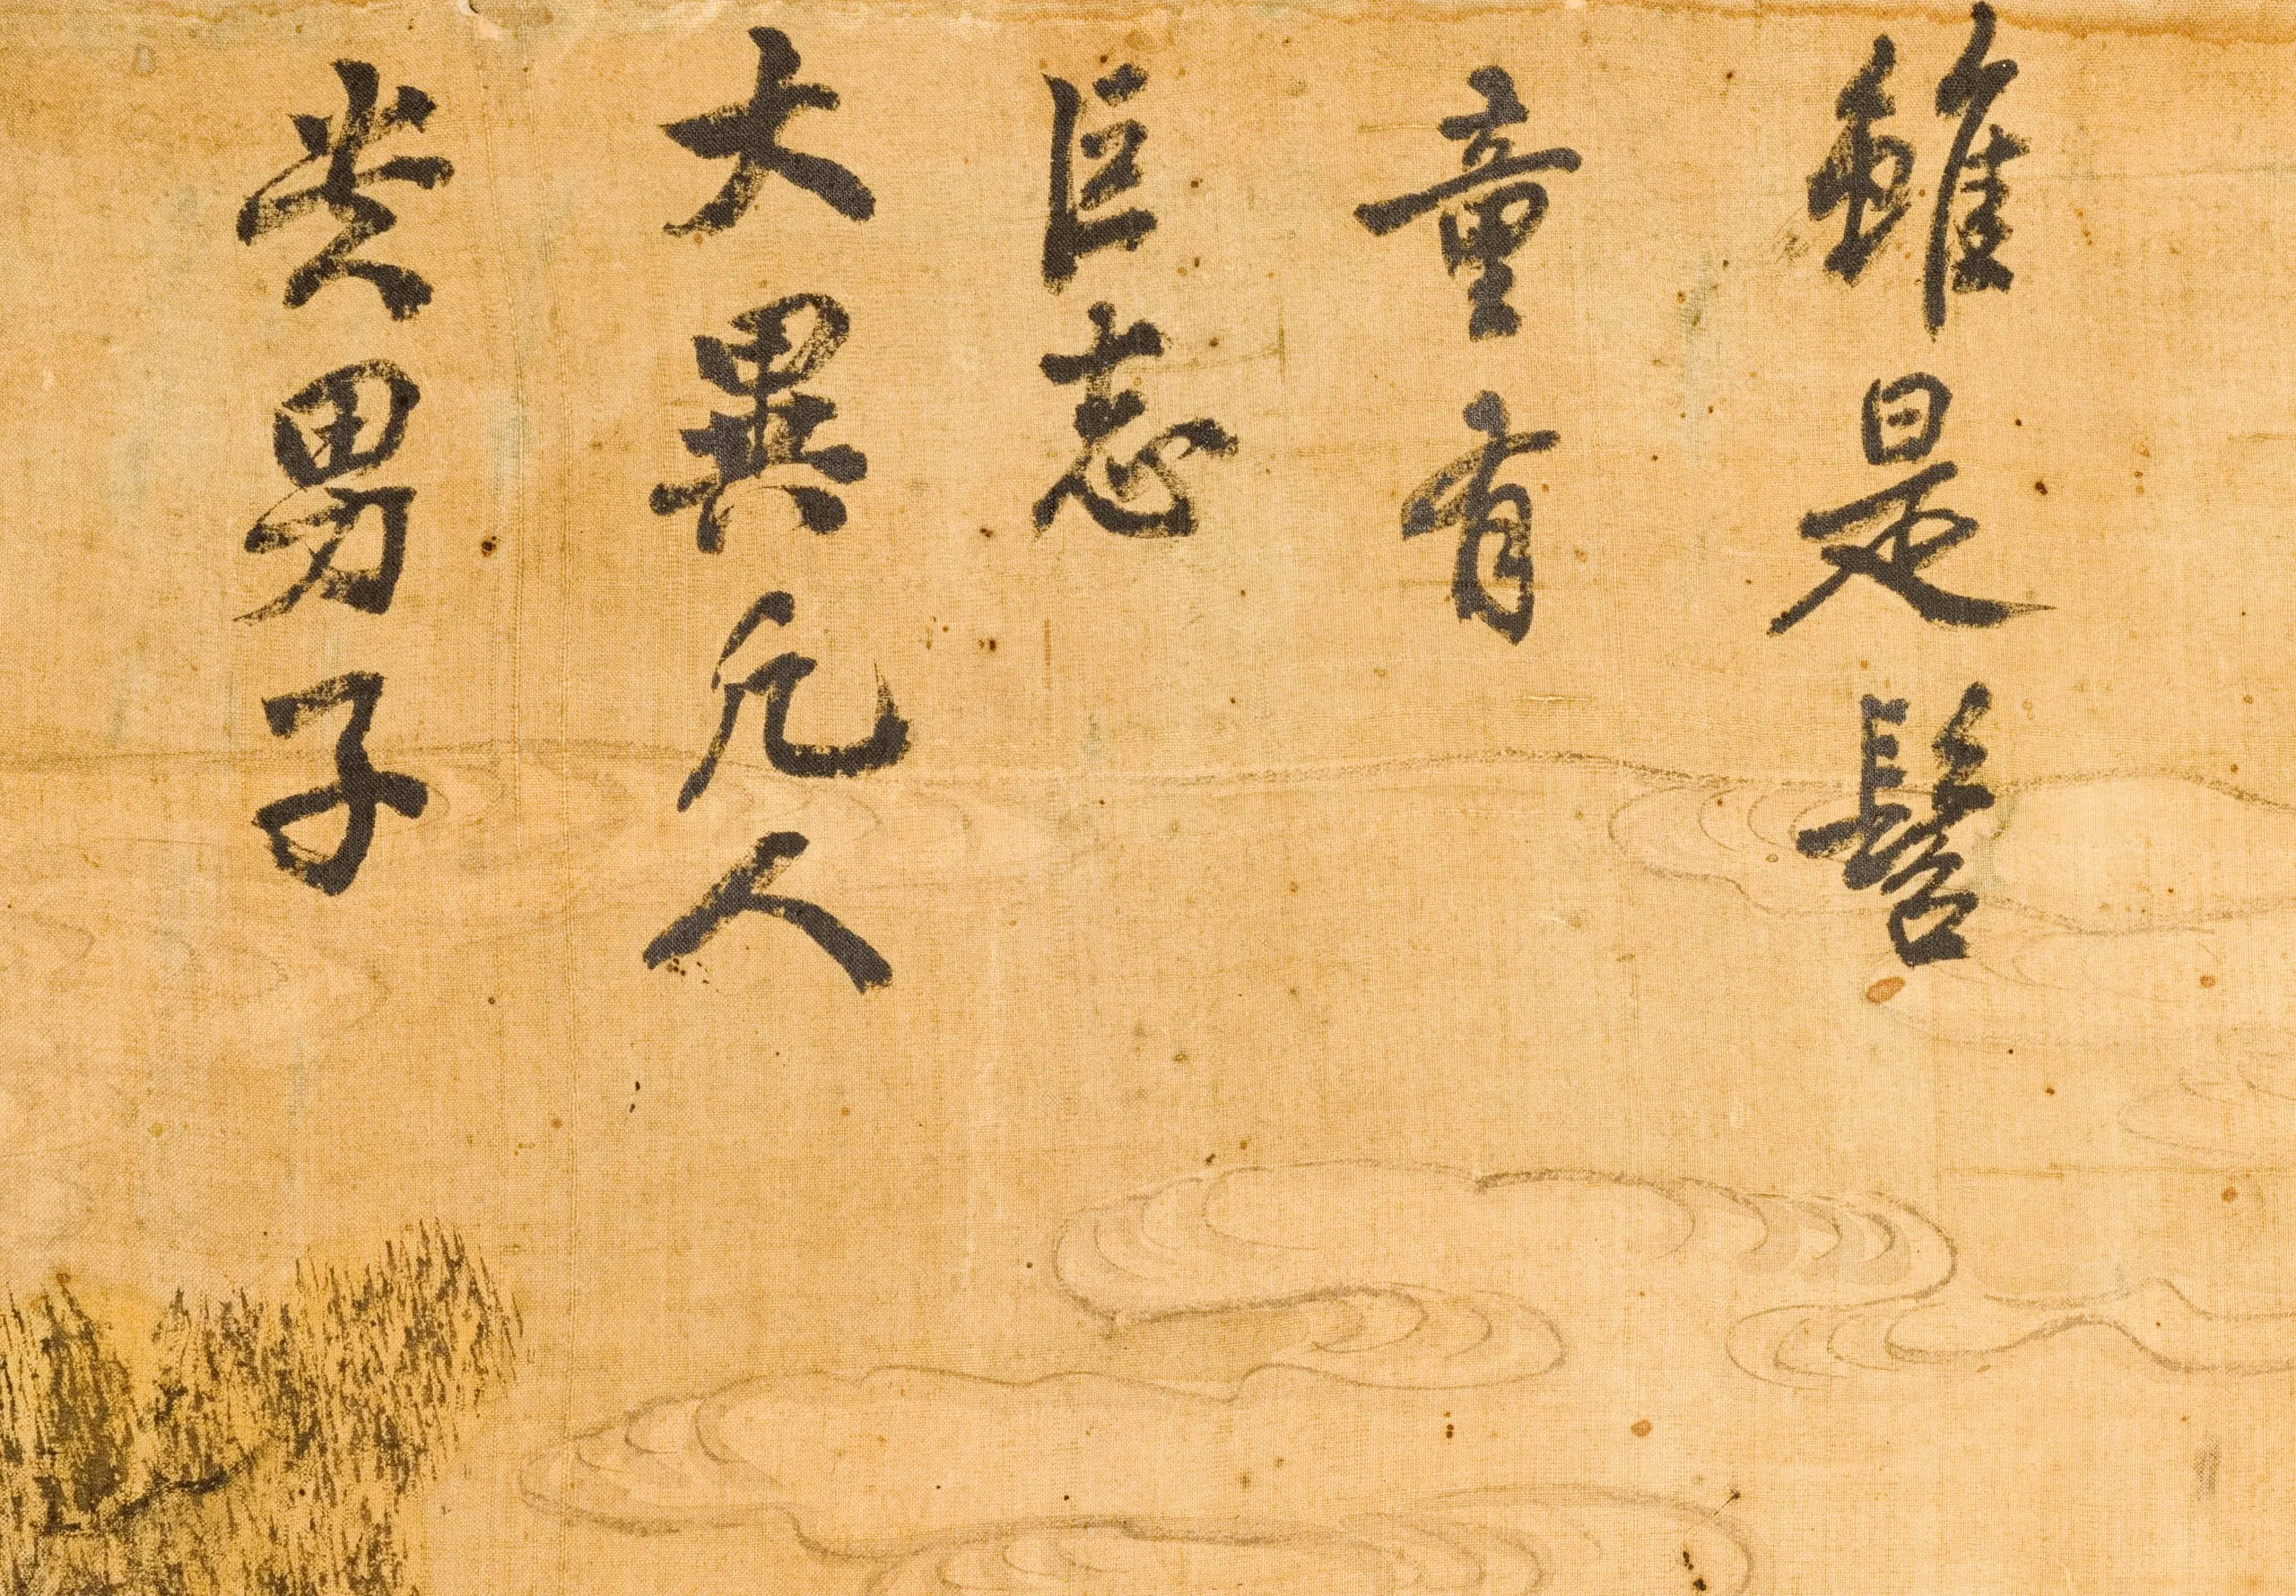 雖是髫
童有
巨志
大異凡人
男子